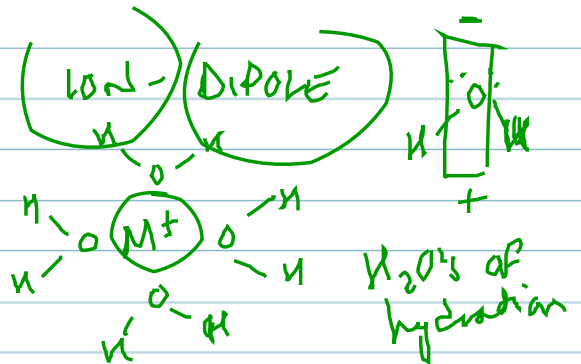 ION - DIPOLE
−
H H
O
:O:
H H
+
H
O M⁺ O H
H H
O
H H
H₂O's of
hydration